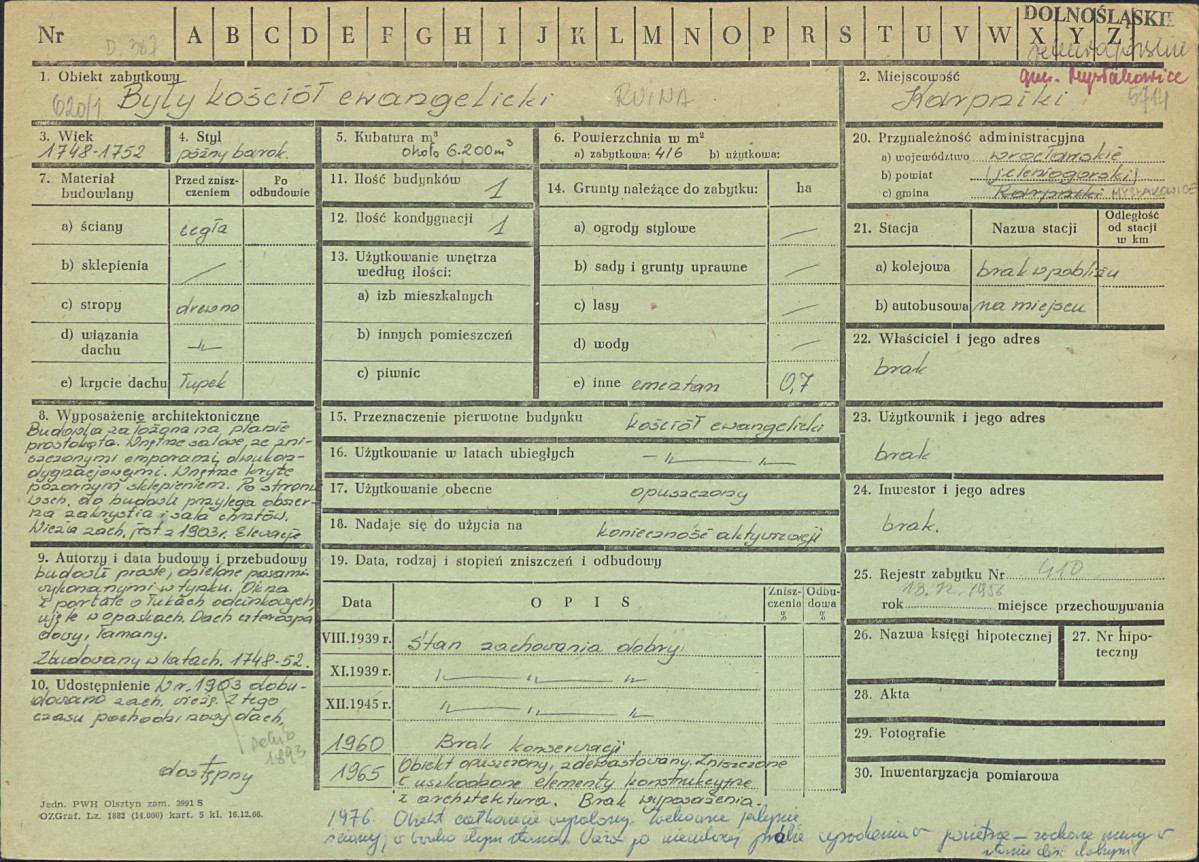 Nr D. 387 A B C D E F G H I J K L M N O P R S T U V W X Y Z
DOLNOŚLĄSKIE
jeleniogórskie
gm. Mysłakowice
1. Obiekt zabytkowy
620/1 Były kościół ewangelicki RUINA
2. Miejscowość
Karpniki 5714
3. Wiek
1748-1752
4. Styl
późny barok.
5. Kubatura m³
około 6.200 m³
6. Powierzchnia w m²
a) zabytkowa: 416 b) użytkowa:
7. Materiał budowlany
Przed zniszczeniem
Po odbudowie
a) ściany cegła
b) sklepienia —
c) stropy drewno
d) wiązania dachu —"—
e) krycie dachu łupek
11. Ilość budynków 1
12. Ilość kondygnacji 1
13. Użytkowanie wnętrza
według ilości:
a) izb mieszkalnych
b) innych pomieszczeń
c) piwnic
14. Grunty należące do zabytku: ha
a) ogrody stylowe —
b) sady i grunty uprawne —
c) lasy —
d) wody —
e) inne cmentarz 0,7
20. Przynależność administracyjna
a) województwo wrocławskie
b) powiat (jeleniogórski)
c) gmina Karpniki MYSŁAKOWICE
21. Stacja Nazwa stacji Odległość od stacji w km
a) kolejowa brak w pobliżu
b) autobusowa na miejscu
22. Właściciel i jego adres
brak
23. Użytkownik i jego adres
brak
24. Inwestor i jego adres
brak.
25. Rejestr zabytku Nr 410
rok 1956 miejsce przechowywania
26. Nazwa księgi hipotecznej
27. Nr hipoteczny
28. Akta
29. Fotografie
30. Inwentaryzacja pomiarowa
8. Wyposażenie architektoniczne
Budowla założona na planie
prostokąta. Wnętrze salowe, ze zni-
szczonymi emporami dwukon-
dygnacjowymi. Wnętrze kryte
pozornym sklepieniem. Po stronie
wsch. do budowli przylega obszer-
na zakrystia i sala chrztów.
Wieża zach. jest z 1903r. Elewacje
9. Autorzy i data budowy i przebudowy
budowli proste, obielone pasami
wykonanymi w tynku. Okna
i portale o łukach odcinkowych
ujęte w opaskach. Dach czterospa-
dowy, łamany.
Zbudowany w latach. 1748-52.
10. Udostępnienie W r. 1903 dobu-
dowano zach. wieżę. Z tego
czasu pochodzi nowy dach,
1893
dostępny
15. Przeznaczenie pierwotne budynku kościół ewangelicki
16. Użytkowanie w latach ubiegłych —"— —"—
17. Użytkowanie obecne opuszczony
18. Nadaje się do użycia na konieczność aktywizacji
19. Data, rodzaj i stopień zniszczeń i odbudowy
Data OPIS Zniszczenia % Odbudowa %
VIII.1939 r. Stan zachowania dobry
XI.1939 r. —"— —"—
XII.1945 r. —"— —"—
1960 Brak konserwacji
1965 Obiekt opuszczony, zdewastowany. Zniszczone
i uszkodzone elementy konstrukcyjne
i architektura. Brak wyposażenia.
1976. Obiekt całkowicie wypalony. Zachowane jedynie
ściany, w bardzo złym stanie. Wieża po nieudanej próbie wysadzenia w powietrze – zachow. mury w
stanie dobrym
Jedn. PWH Olsztyn zam. 3991 S
OZGraf. Lz. 1882 (14.000) kart. 5 kl. 16.12.66.